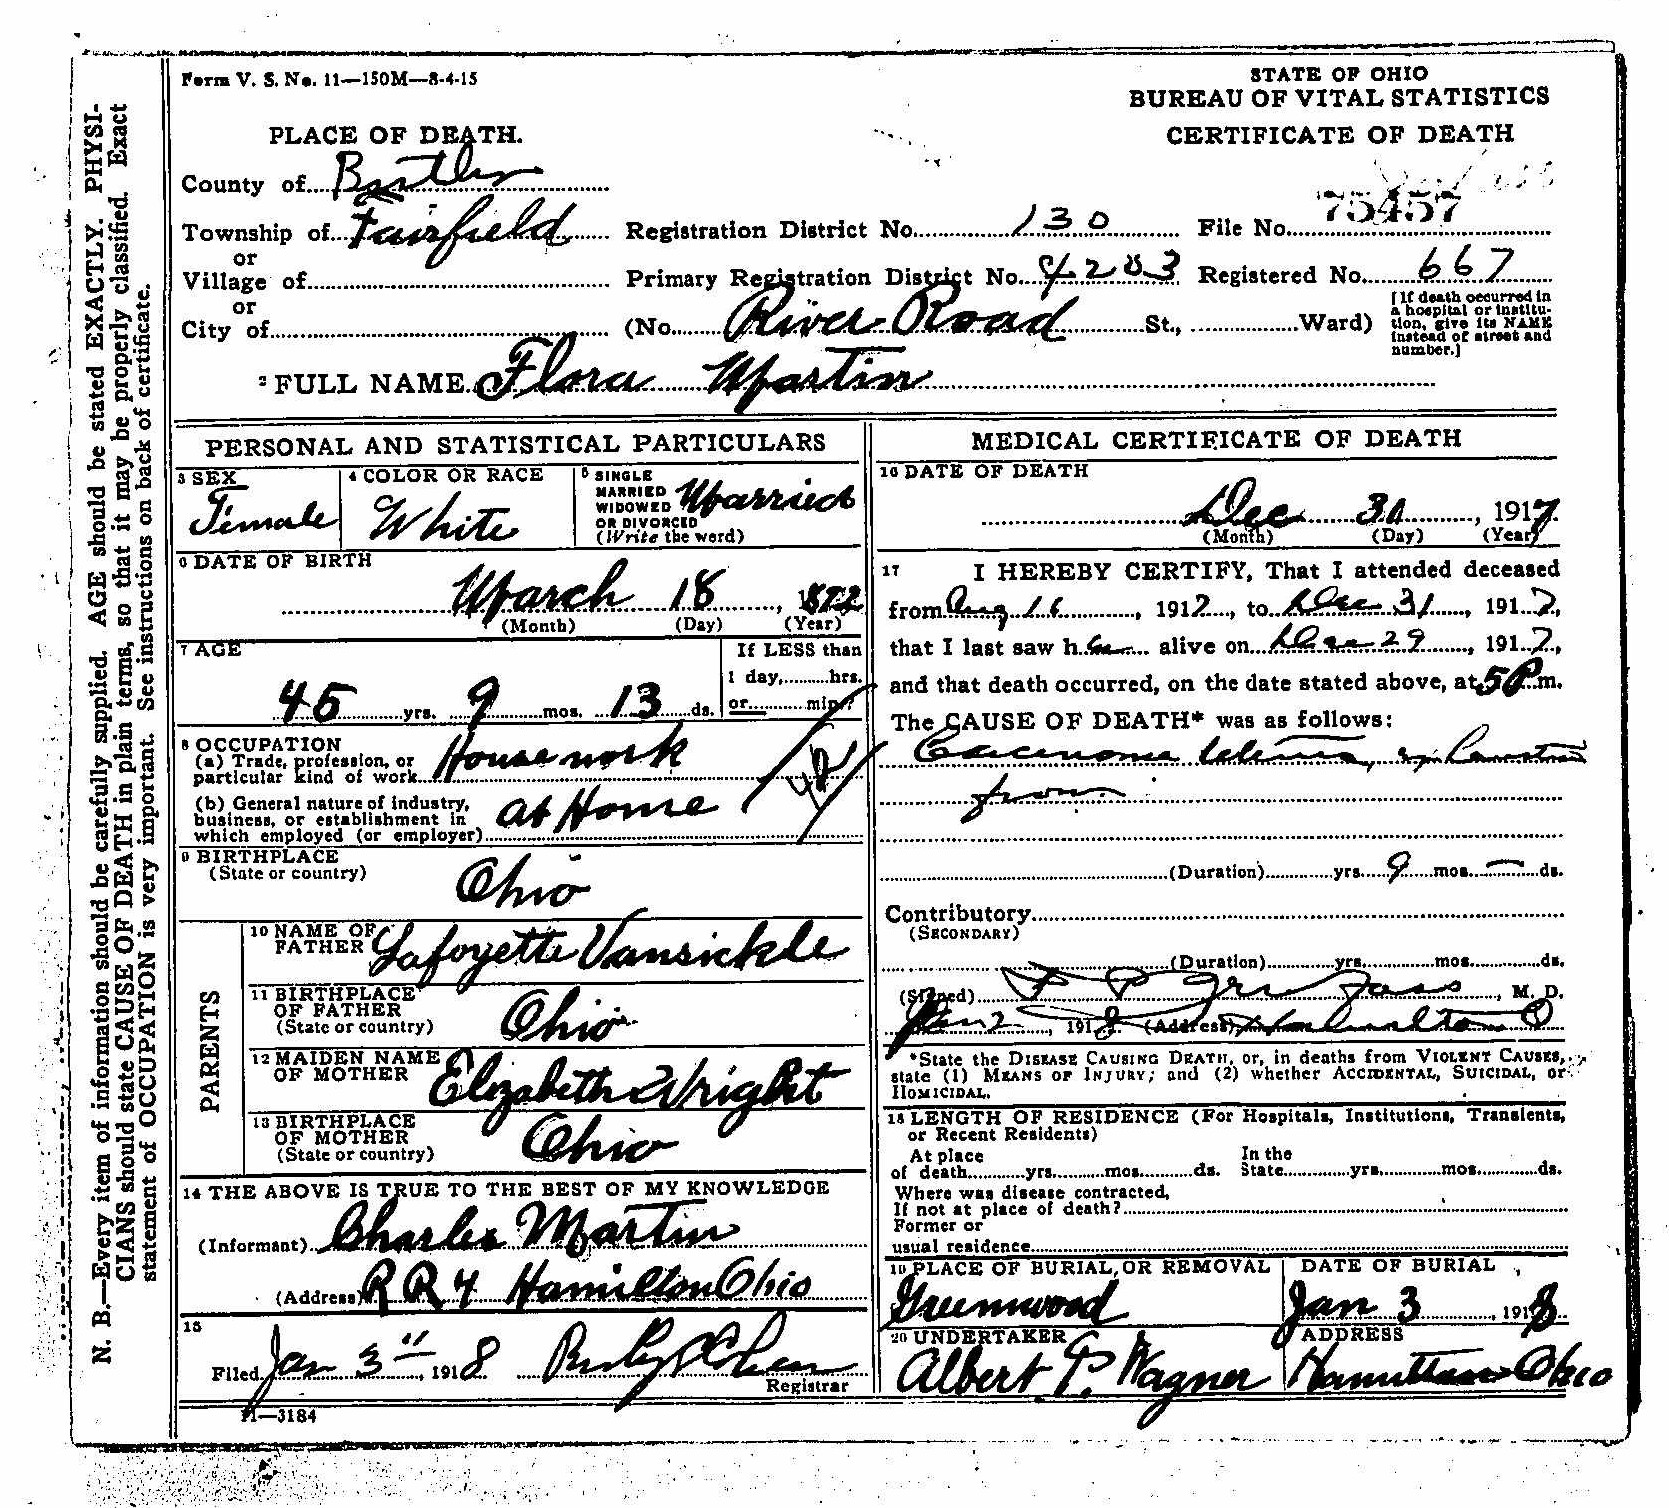 Form V. S. No. 11—150M—8-4-15
STATE OF OHIO
BUREAU OF VITAL STATISTICS
CERTIFICATE OF DEATH
PLACE OF DEATH.
County of Butler
Township of Fairfield Registration District No. 130 File No. 75457
or
Village of Primary Registration District No. 4203 Registered No. 667
or
City of (No. River Road St., Ward)
[If death occurred in a hospital or institution, give its NAME instead of street and number.]
2 FULL NAME Flora Martin
PERSONAL AND STATISTICAL PARTICULARS
3 SEX
Female
4 COLOR OR RACE
White
5 SINGLE
MARRIED
WIDOWED
OR DIVORCED
(Write the word)
Married
6 DATE OF BIRTH
March 18, 1872
(Month) (Day) (Year)
7 AGE
45 yrs. 9 mos. 13 ds.
If LESS than
1 day, hrs.
or min?
8 OCCUPATION
(a) Trade, profession, or
particular kind of work House work
(b) General nature of industry,
business, or establishment in
which employed (or employer) at Home
9 BIRTHPLACE
(State or country)
Ohio
PARENTS
10 NAME OF
FATHER Lafoyette Vansickle
11 BIRTHPLACE
OF FATHER
(State or country) Ohio
12 MAIDEN NAME
OF MOTHER Elizabeth Wright
13 BIRTHPLACE
OF MOTHER
(State or country) Ohio
14 THE ABOVE IS TRUE TO THE BEST OF MY KNOWLEDGE
(Informant) Charles Martin
(Address) R R 4 Hamilton Ohio
15
Filed Jan 3", 1918
Registrar
11—3184
MEDICAL CERTIFICATE OF DEATH
16 DATE OF DEATH
Dec, 1917
(Month) (Day) (Year)
17 I HEREBY CERTIFY, That I attended deceased
from Aug 16, 1917, to Dec 31, 1917,
that I last saw her alive on Dec 29, 1917,
and that death occurred, on the date stated above, at 5 P.m.
The CAUSE OF DEATH* was as follows:
Carcinoma Uterus
from
(Duration) yrs. 9 mos. — ds.
Contributory
(SECONDARY)
(Duration) yrs. mos. ds.
(Signed) M. D.
Jan 2, 1918 (Address) Hamilton O
*State the DISEASE CAUSING DEATH, or, in deaths from VIOLENT CAUSES,
state (1) MEANS OF INJURY; and (2) whether ACCIDENTAL, SUICIDAL, or
HOMICIDAL.
18 LENGTH OF RESIDENCE (For Hospitals, Institutions, Transients,
or Recent Residents)
At place In the
of death yrs. mos. ds. State yrs. mos. ds.
Where was disease contracted,
If not at place of death?
Former or
usual residence
19 PLACE OF BURIAL, OR REMOVAL
Greenwood
DATE OF BURIAL
Jan 3, 1918
20 UNDERTAKER
Albert P. Wagner
ADDRESS
Hamilton Ohio
N. B.—Every item of information should be carefully supplied. AGE should be stated EXACTLY. PHYSI-
CIANS should state CAUSE OF DEATH in plain terms, so that it may be properly classified. Exact
statement of OCCUPATION is very important. See instructions on back of certificate.